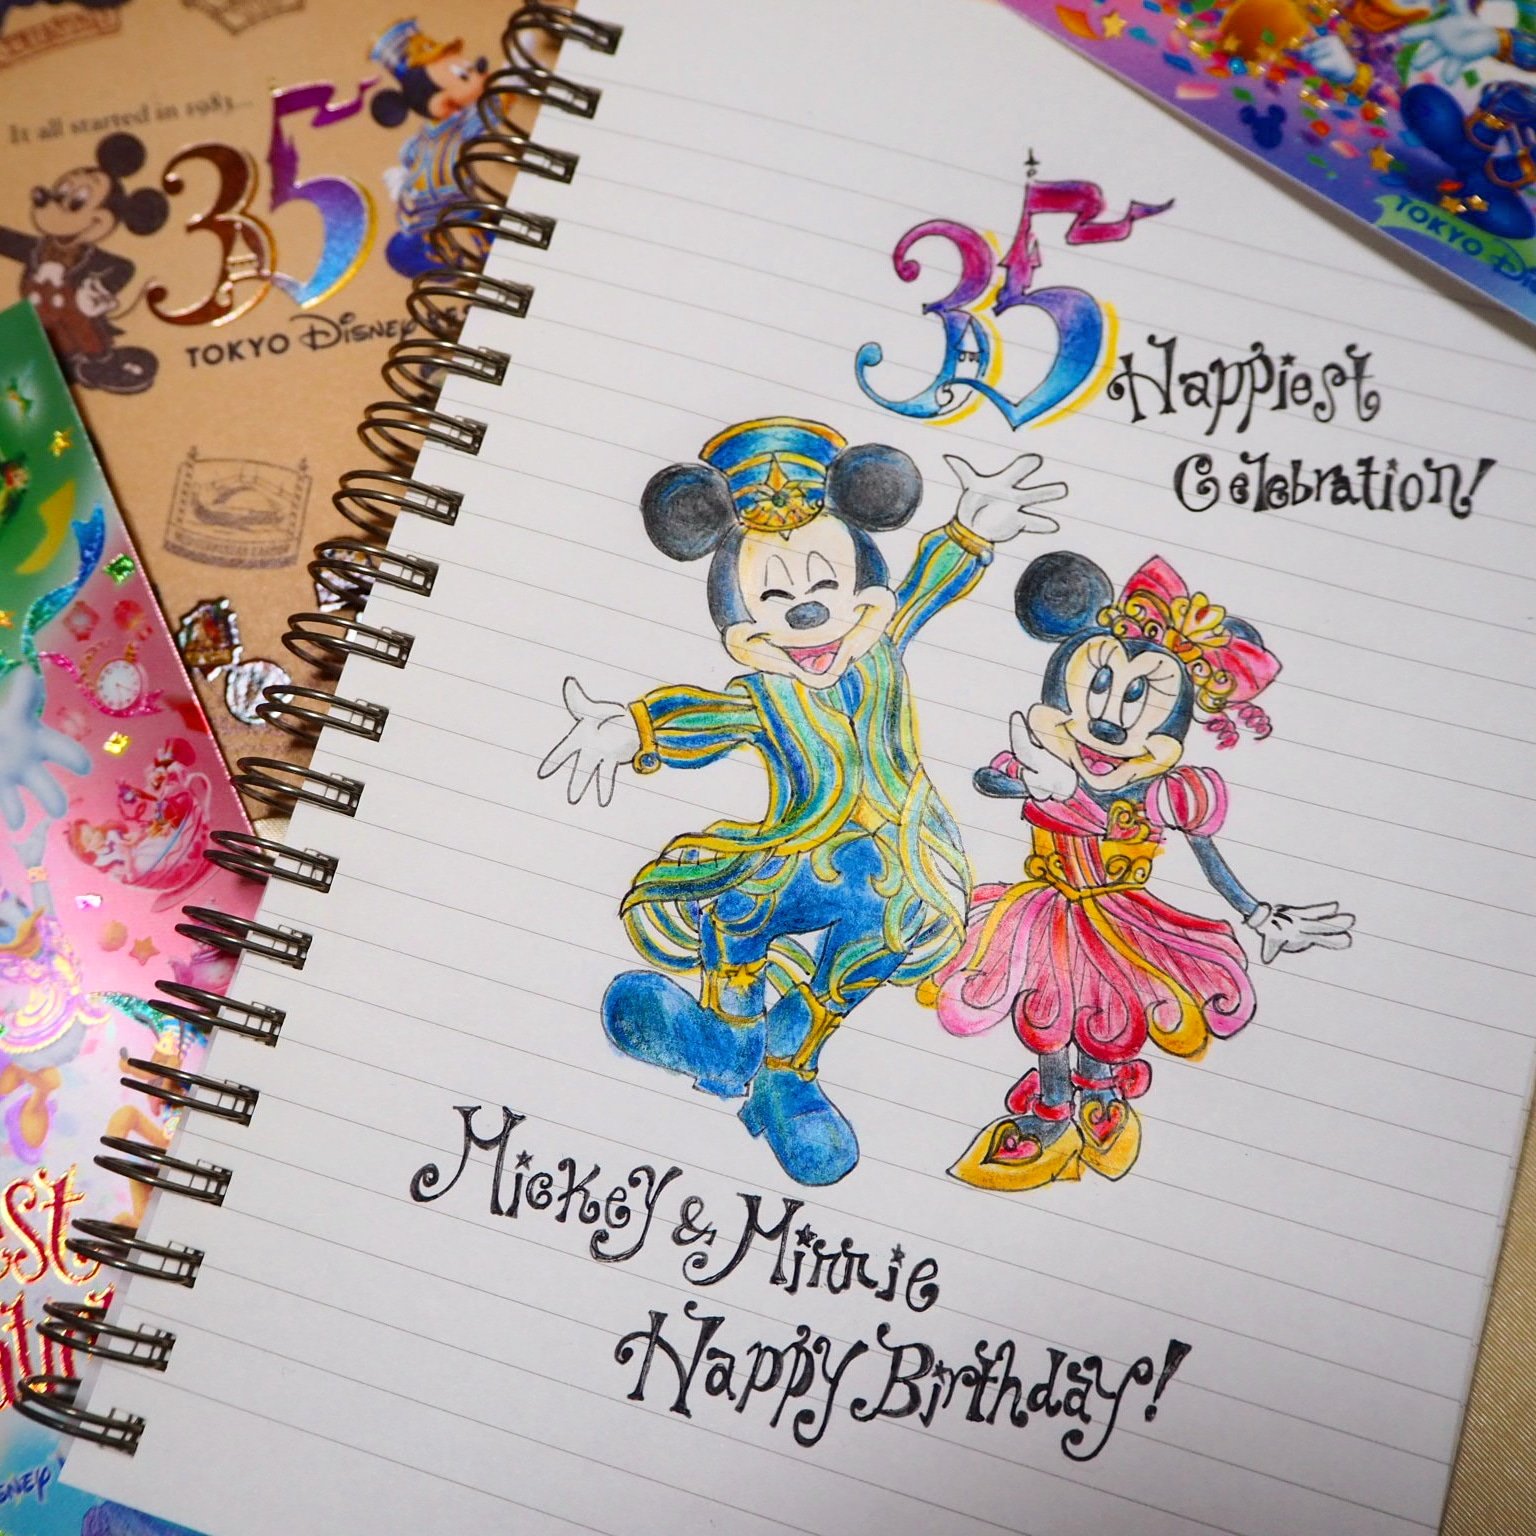 It all started in 1983...
35
TOKYO Disney RES
TOKYO D
35
Happiest
Celebration!
Mickey & Minnie
Happy Birthday!